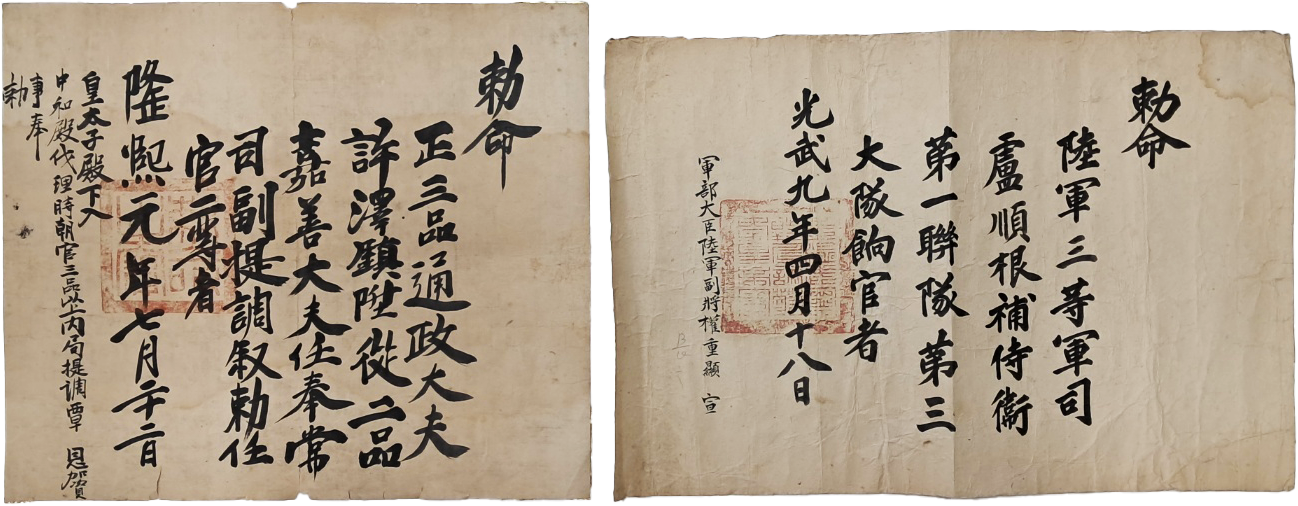 勅命
正三品通政大夫
許澤鎭陞從二品
嘉善大夫任奉常
司副提調敍勅任
官二等者
隆熙元年七月二十二日
皇太子殿下入
中和殿代理時朝官三品以上內局提調覃 恩賀
事奉
勅
勅命
陸軍三等軍司
盧順根補侍衛
第一聯隊第三
大隊餉官者
光武九年四月十八日
軍部大臣陸軍副將權重顯 宣